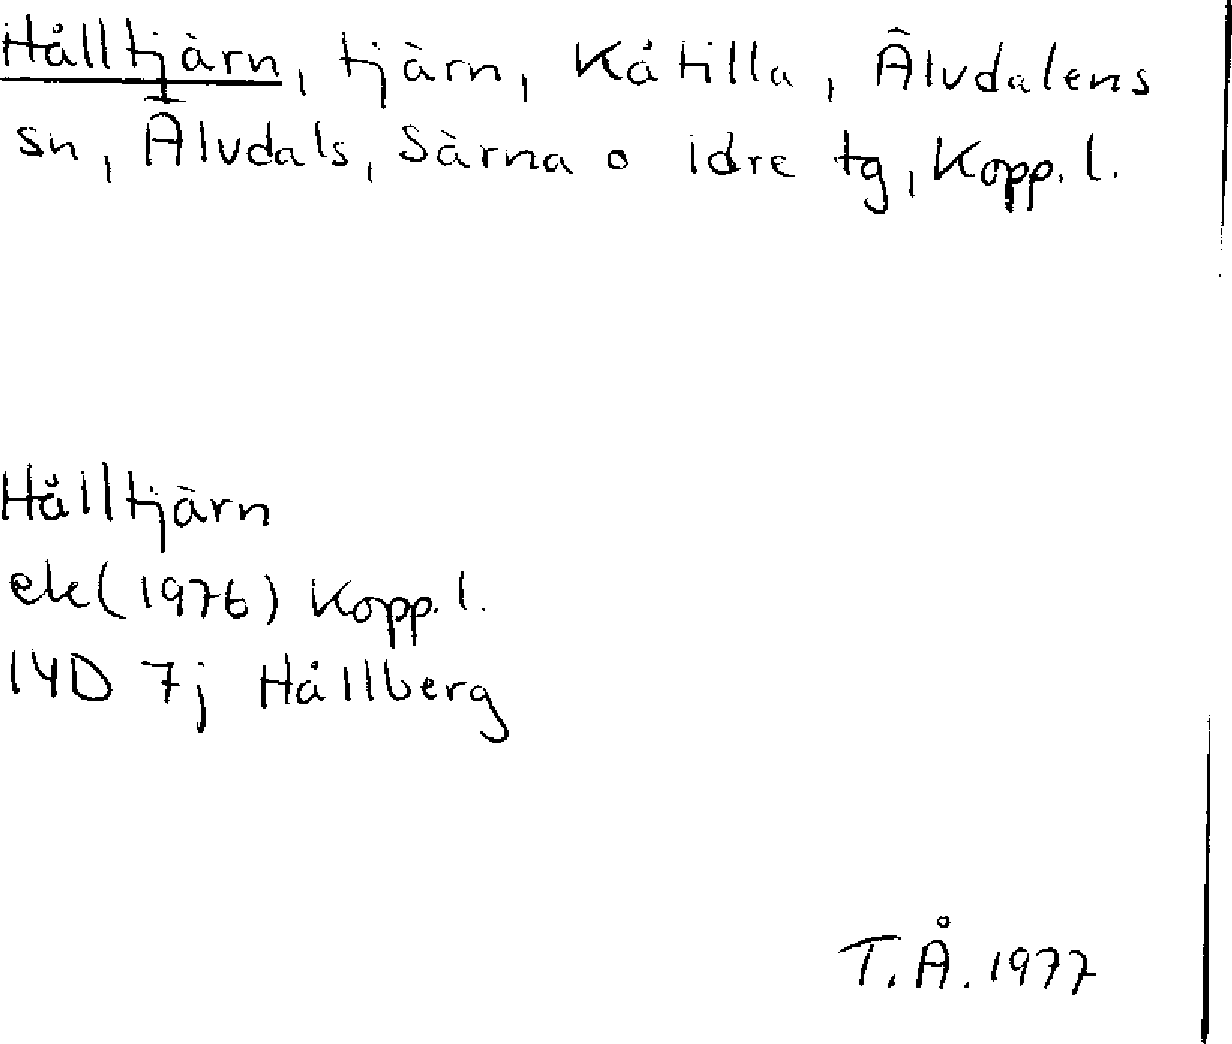 Hålltjärn, tjärn, Kåtilla, Älvdalens
sn, Älvdals, Särna o idre tg, Kopp. l.
Hålltjärn
ek (1976) Kopp. l.
14D 7j Hållberg
T. Å. 1977